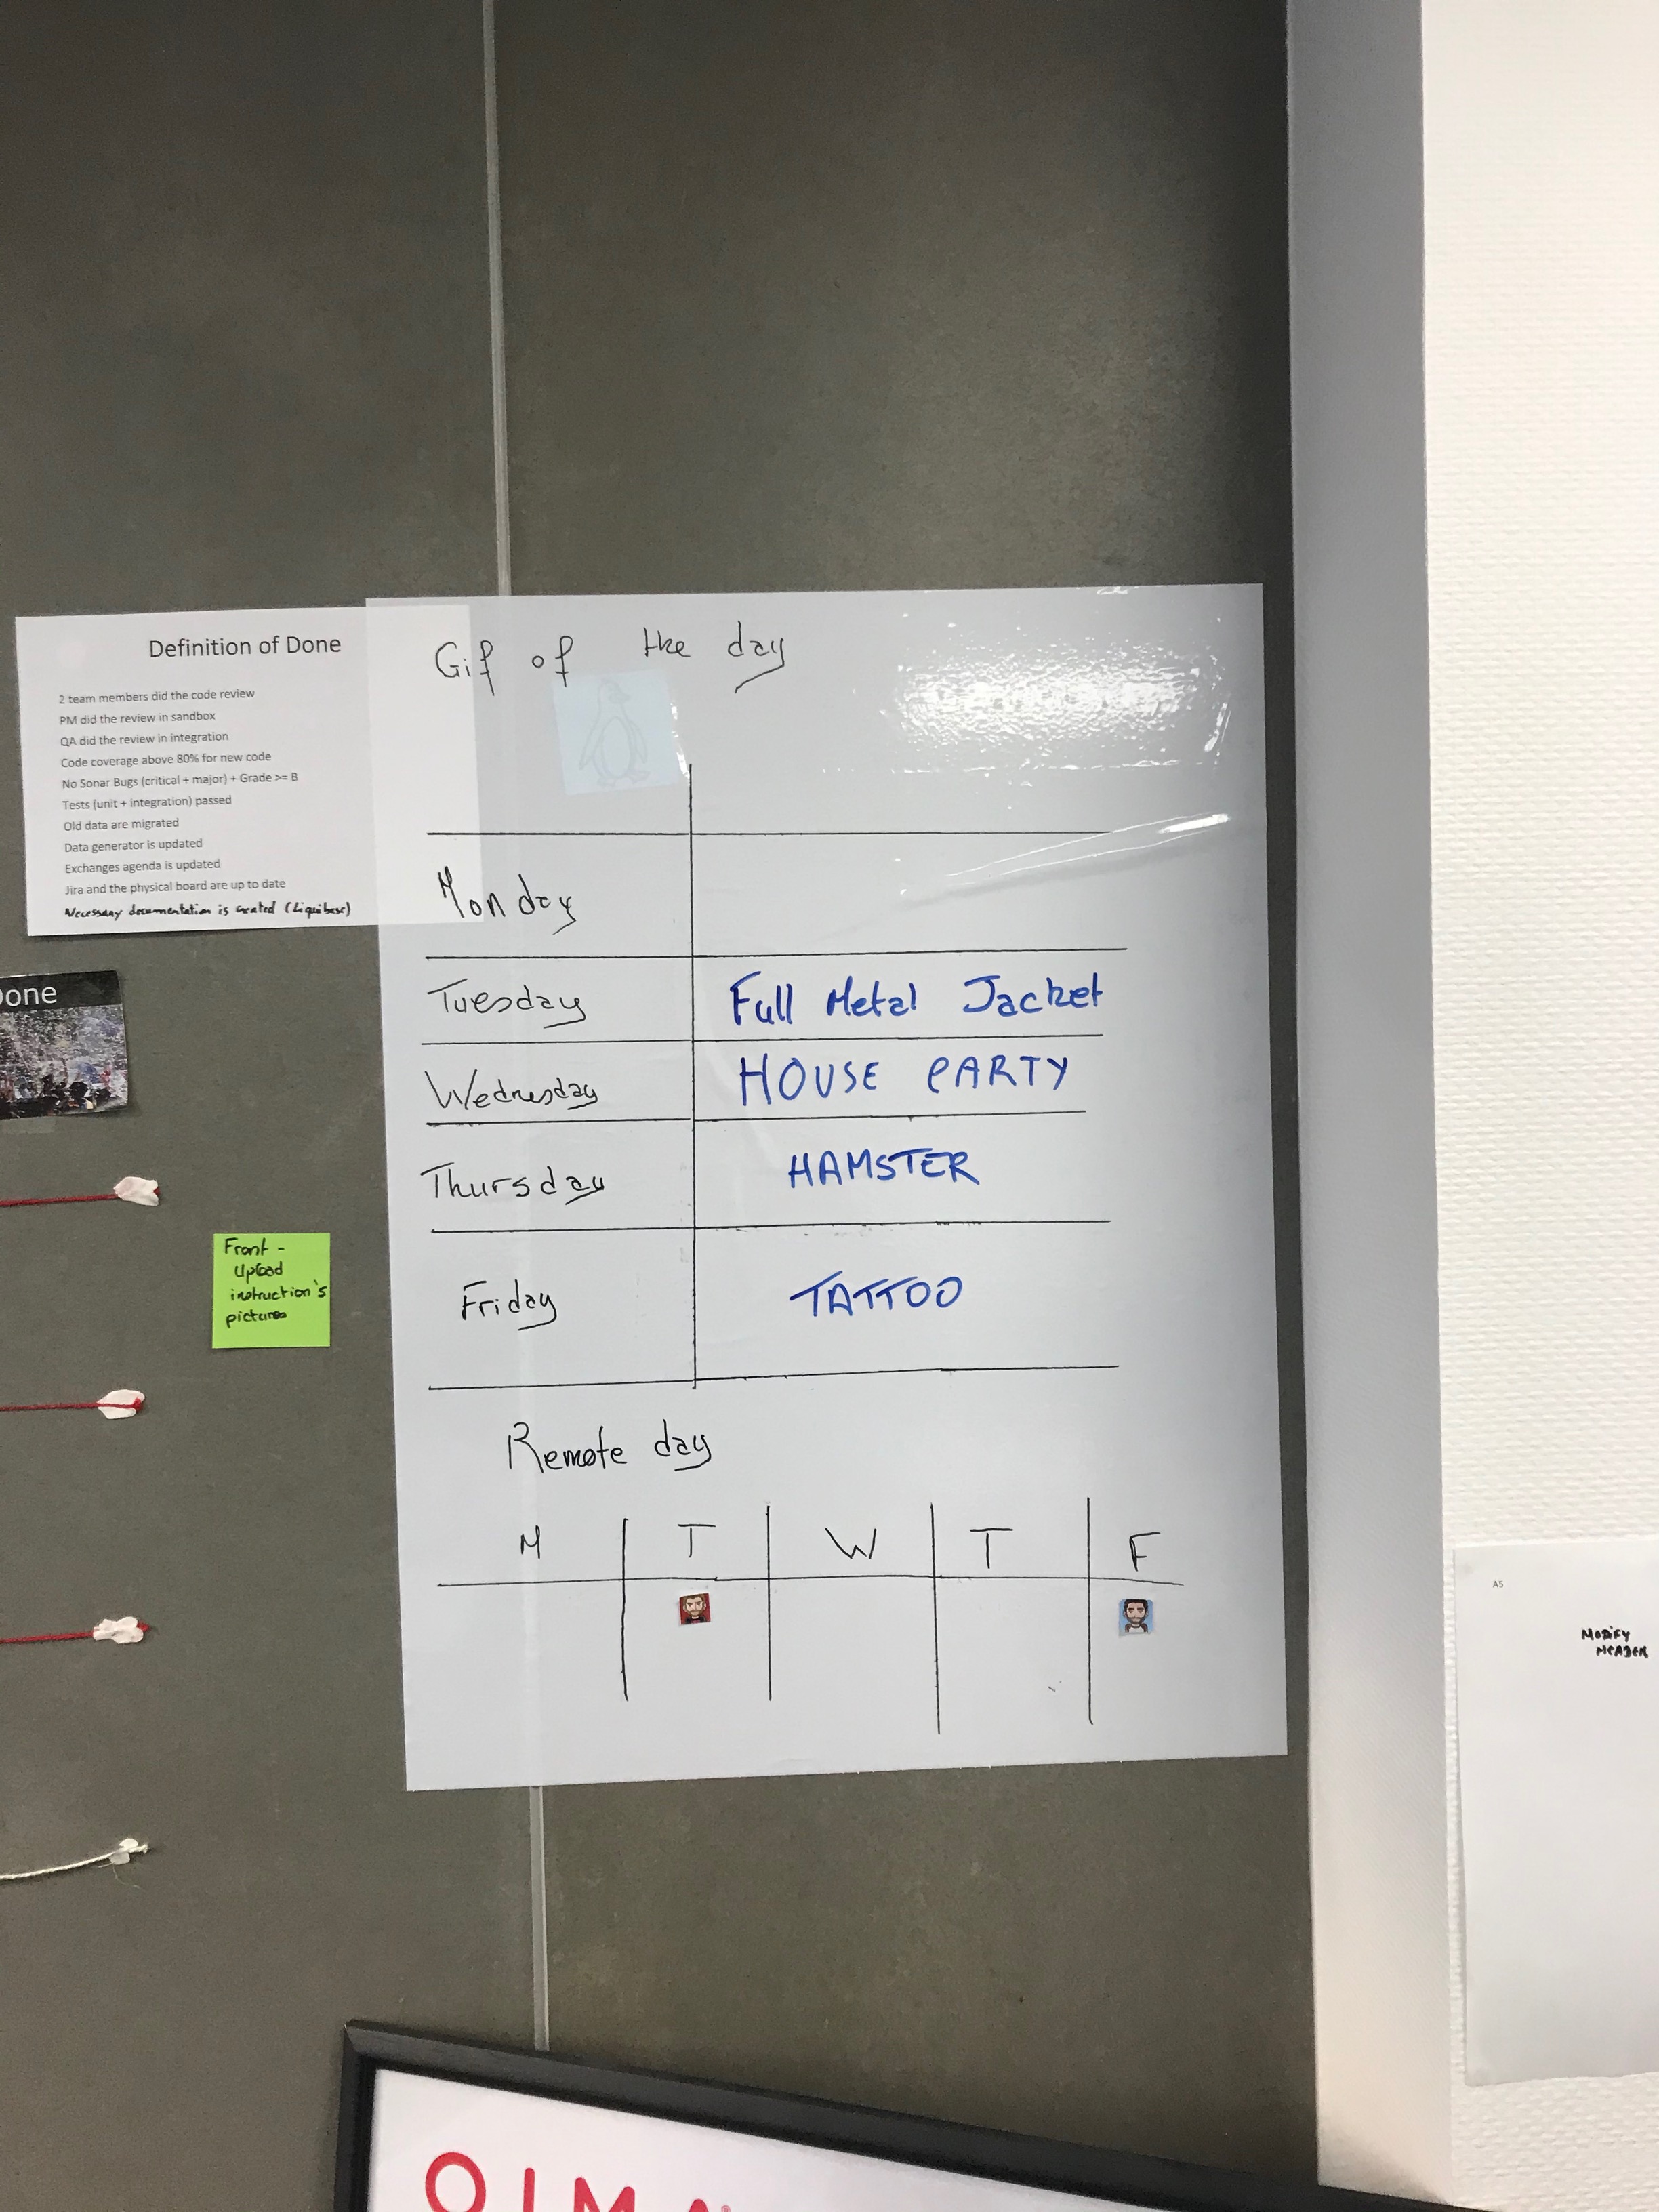 Definition of Done
2 team members did the code review
PM did the review in sandbox
QA did the review in integration
Code coverage above 80% for new code
No Sonar Bugs (critical + major) + Grade >= B
Tests (unit + integration) passed
Old data are migrated
Data generator is updated
Exchanges agenda is updated
Jira and the physical board are up to date
Necessary documentation is created (Liquibase)
Done
Front -
Upload
instruction's
pictures
Gif of the day
Monday
Tuesday Full Metal Jacket
Wednesday HOUSE PARTY
Thursday HAMSTER
Friday TATTOO
Remote day
M T W T F
A5
MODIFY
HEADER